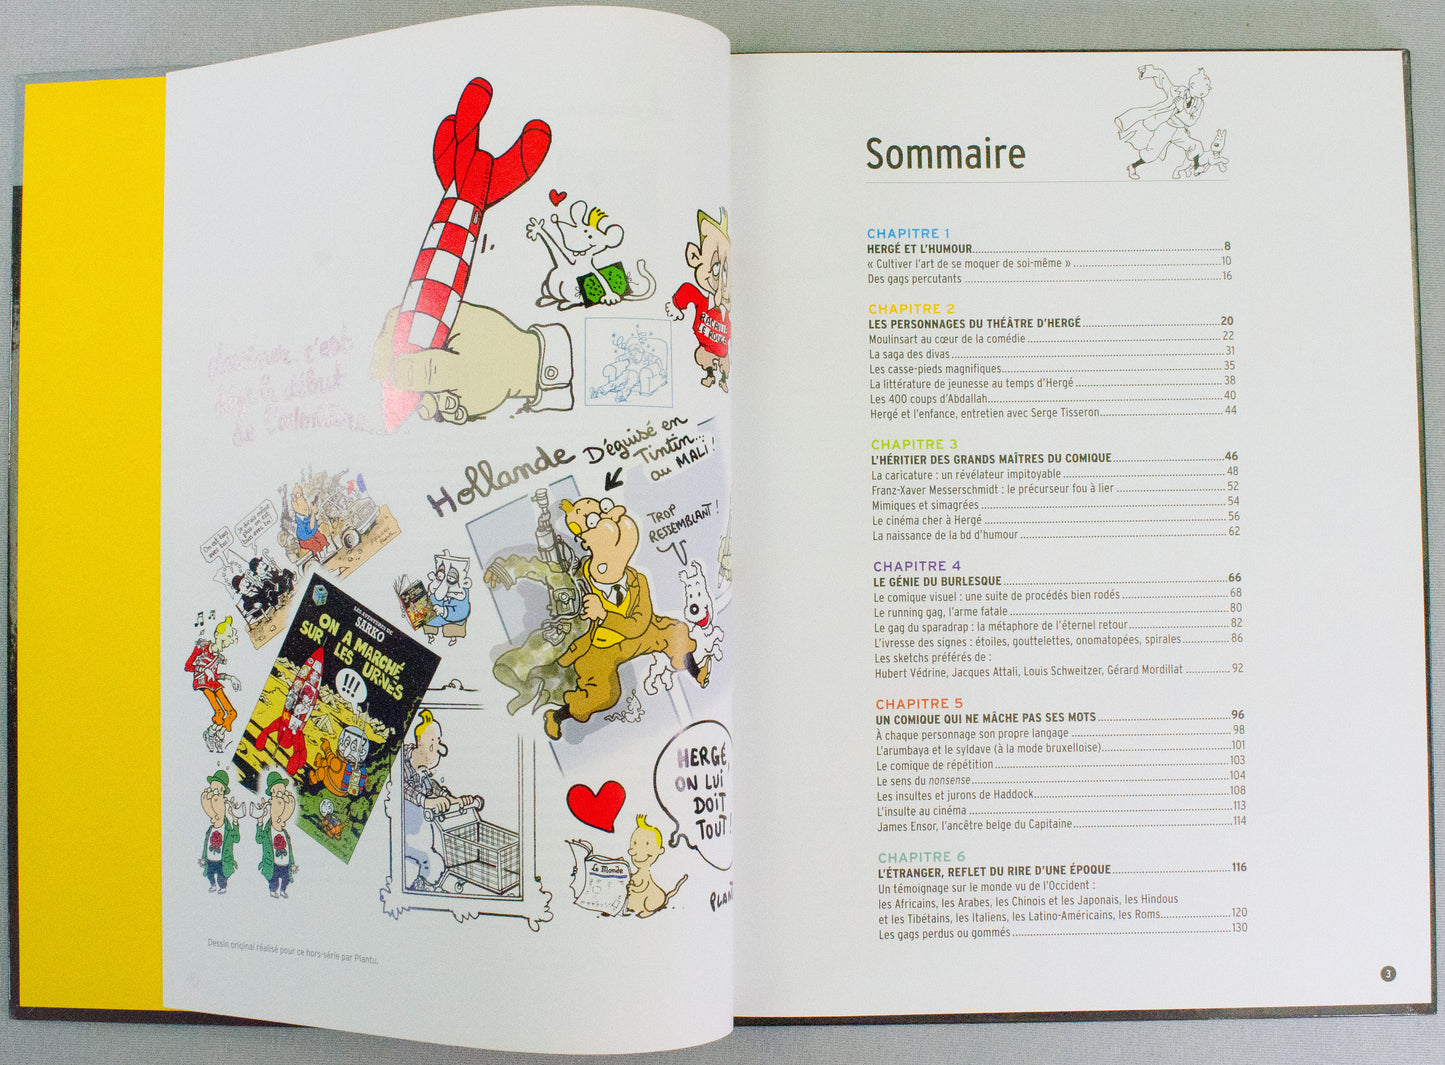 dessiner, c'est
déjà le début
de l'aventure
Hollande Déguisé en
Tintin...
au MALI !
TROP
RESSEMBLANT !
LE ROUGE
LES AVENTURES DE
SARKO
ON A MARCHÉ
SUR LES URNES
!!!
HERGÉ,
ON LUI
DOIT
TOUT !
Le Monde
PLANT
Dessin original réalisé pour ce hors-série par Plantu.
Sommaire
CHAPITRE 1
HERGÉ ET L'HUMOUR 8
« Cultiver l'art de se moquer de soi-même » 10
Des gags percutants 16
CHAPITRE 2
LES PERSONNAGES DU THÉÂTRE D'HERGÉ 20
Moulinsart au cœur de la comédie 22
La saga des divas 31
Les casse-pieds magnifiques 35
La littérature de jeunesse au temps d'Hergé 38
Les 400 coups d'Abdallah 40
Hergé et l'enfance, entretien avec Serge Tisseron 44
CHAPITRE 3
L'HÉRITIER DES GRANDS MAÎTRES DU COMIQUE 46
La caricature : un révélateur impitoyable 48
Franz-Xaver Messerschmidt : le précurseur fou à lier 52
Mimiques et simagrées 54
Le cinéma cher à Hergé 56
La naissance de la bd d'humour 62
CHAPITRE 4
LE GÉNIE DU BURLESQUE 66
Le comique visuel : une suite de procédés bien rodés 68
Le running gag, l'arme fatale 80
Le gag du sparadrap : la métaphore de l'éternel retour 82
L'ivresse des signes : étoiles, gouttelettes, onomatopées, spirales 86
Les sketchs préférés de :
Hubert Védrine, Jacques Attali, Louis Schweitzer, Gérard Mordillat 92
CHAPITRE 5
UN COMIQUE QUI NE MÂCHE PAS SES MOTS 96
À chaque personnage son propre langage 98
L'arumbaya et le syldave (à la mode bruxelloise) 101
Le comique de répétition 103
Le sens du nonsense 104
Les insultes et jurons de Haddock 108
L'insulte au cinéma 113
James Ensor, l'ancêtre belge du Capitaine 114
CHAPITRE 6
L'ÉTRANGER, REFLET DU RIRE D'UNE ÉPOQUE 116
Un témoignage sur le monde vu de l'Occident :
les Africains, les Arabes, les Chinois et les Japonais, les Hindous
et les Tibétains, les Italiens, les Latino-Américains, les Roms 120
Les gags perdus ou gommés 130
3